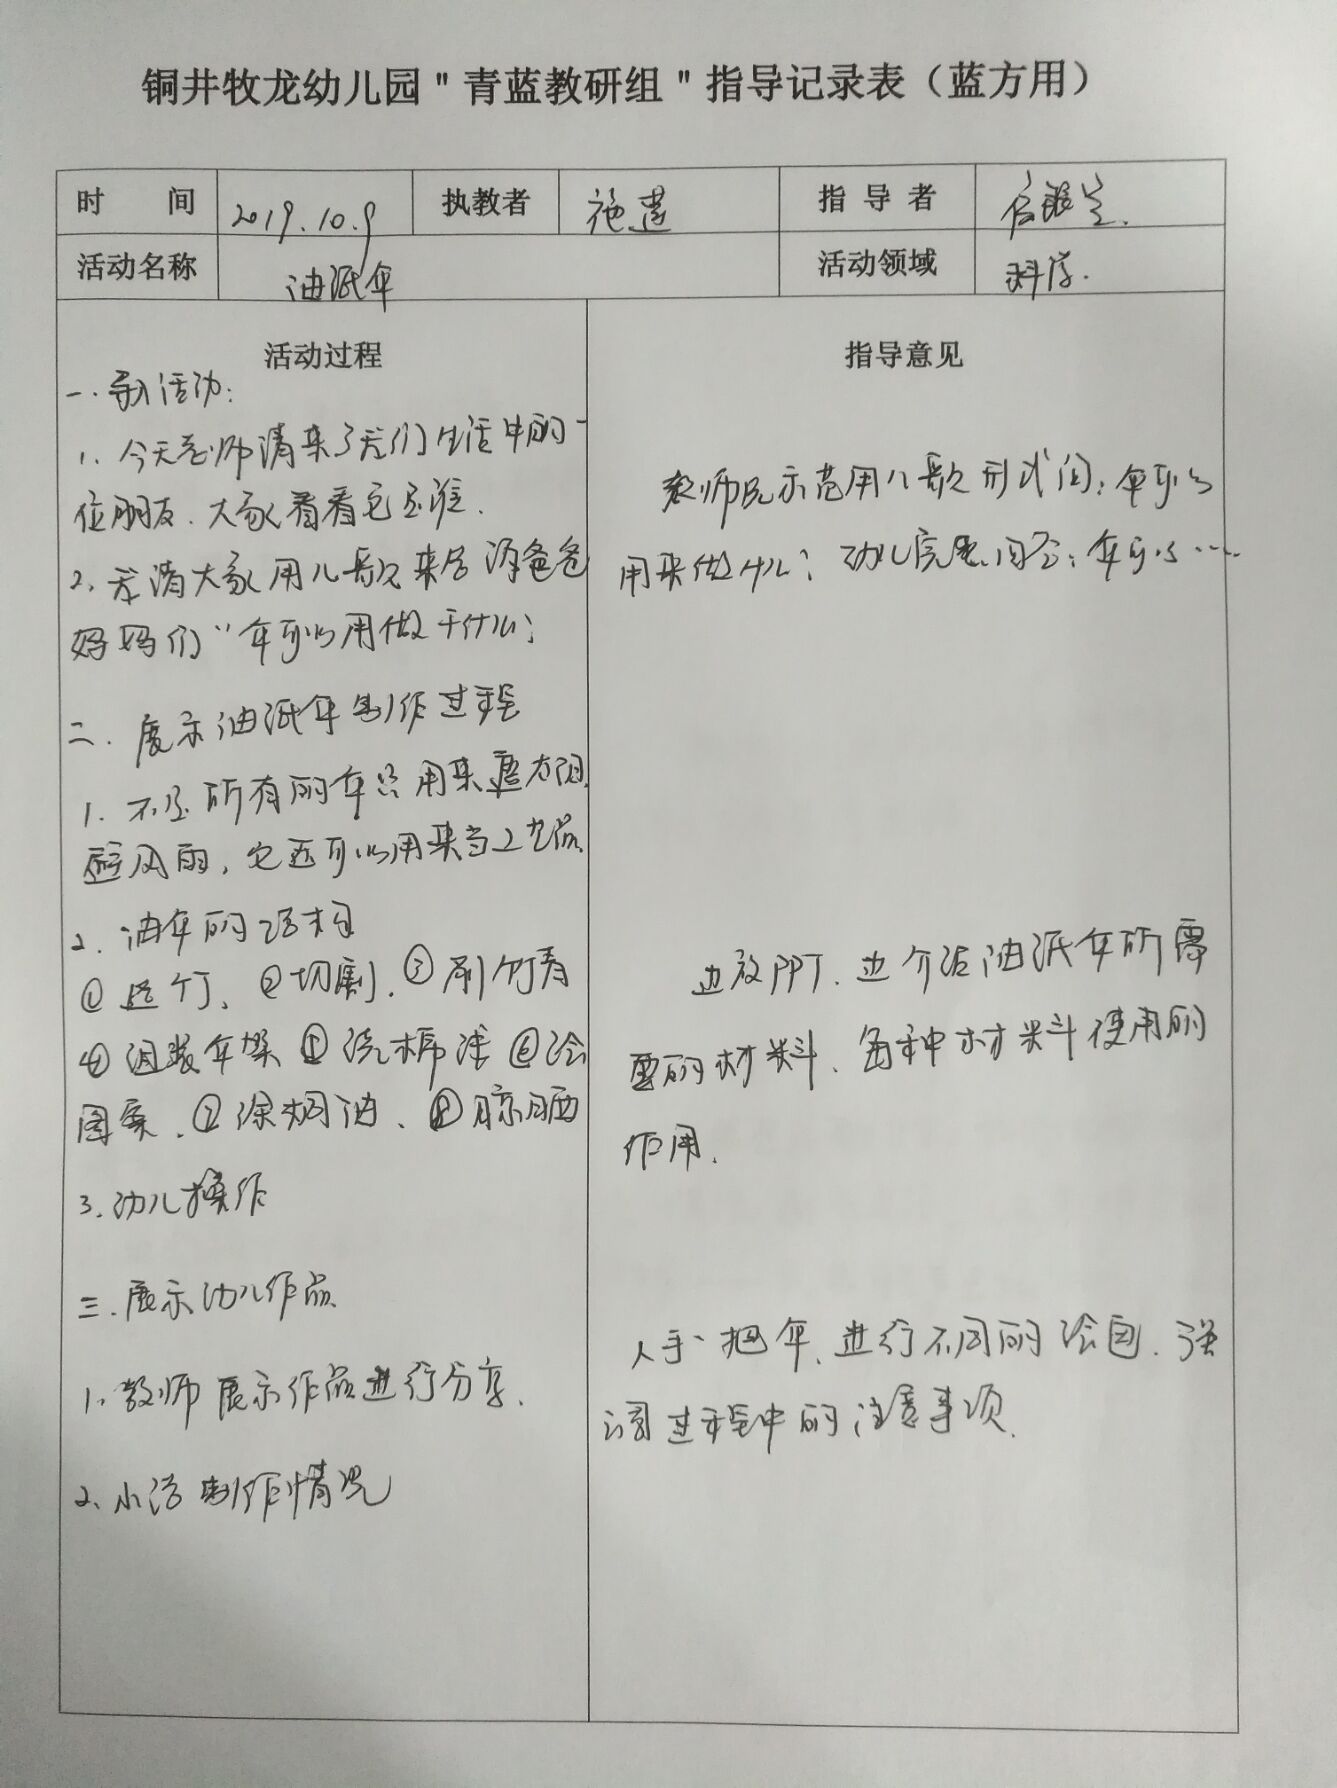 铜井牧龙幼儿园"青蓝教研组"指导记录表（蓝方用）
时 间 2019.10.9 执教者 施莲 指导者
活动名称 油纸伞 活动领域 科学.
活动过程
一.导入活动:
1. 今天老师请来了我们生活中的一
位朋友.大家看看它是谁.
2.我请大家用儿歌来告诉爸爸
妈妈们"伞可以用做干什么?
二.展示油纸伞制作过程
1.不是所有的伞只用来遮太阳
避风雨,它还可以用来当工艺品.
2.油伞的结构
①选竹、②切割.③刷竹青
④组装伞架⑤洗棉漆⑥绘
图案.⑦涂桐油、⑧晾晒
3.幼儿操作
三.展示幼儿作品
1.教师展示作品进行分享.
2.小结制作情况
指导意见
教师先示范用儿歌形式问:伞可以
用来做什么?幼儿完整回答:伞可以……
边放PPT.边介绍油纸伞所需
要的材料.每种材料使用的
作用.
人手一把伞.进行不同的绘画.强
调过程中的注意事项.